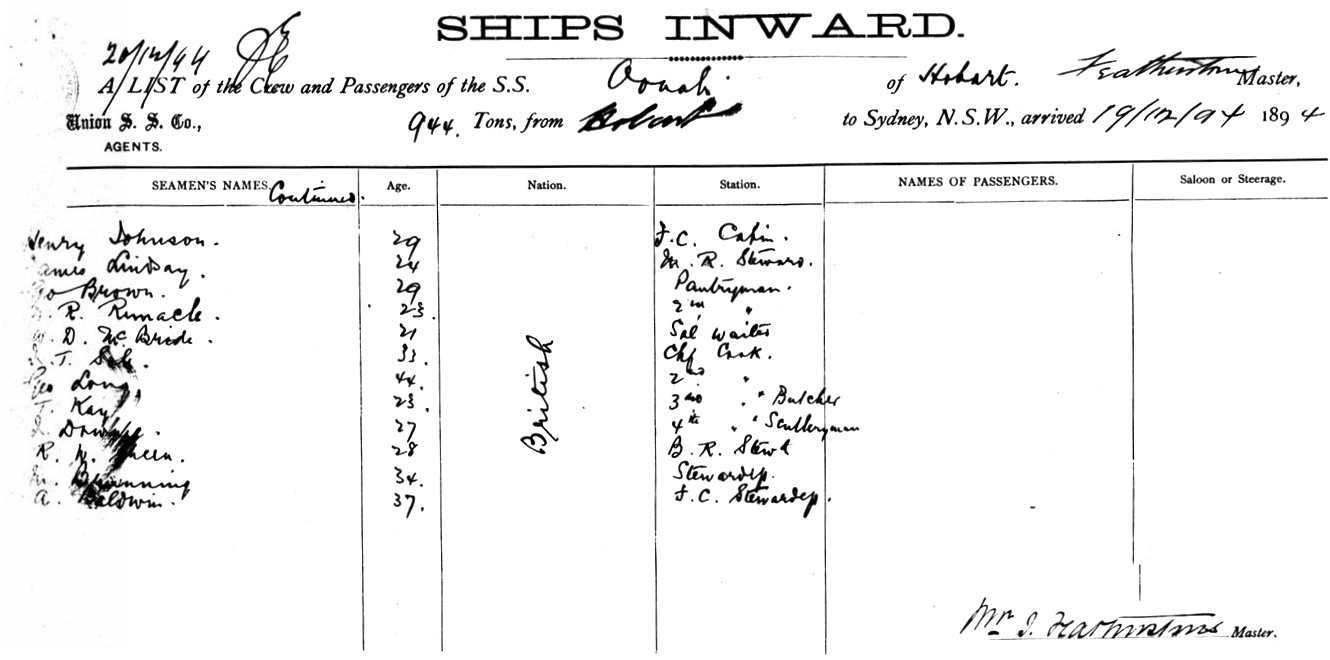 SHIPS INWARD.
20/12/94
A LIST of the Crew and Passengers of the S.S. Oonah of Hobart. Featherstone Master,
Union S. S. Co., 944. Tons, from Hobart to Sydney, N.S.W., arrived 19/12/94 1894
AGENTS.
SEAMEN'S NAMES. Continued. Age. Nation. Station. NAMES OF PASSENGERS. Saloon or Steerage.
Henry Johnson. 29 F.C. Cabin.
James Lindsay. 24 M. R. Steward.
Geo Brown. 29 Pantryman.
R. Rimacle. 23. 2nd "
W. D. McBride. 21 Sal Waiter
T. 33. Chf Cook.
Geo Long, 44. 2nd "
T. Kay 23. 3rd " " Butcher
27 4th " " Sculleryman
R. W. 28 B. R. Stewd
M. Browning 34. Stewardess.
A. Baldwin. 37. F.C. Stewardess.
British
Mr J. Featherstone Master.